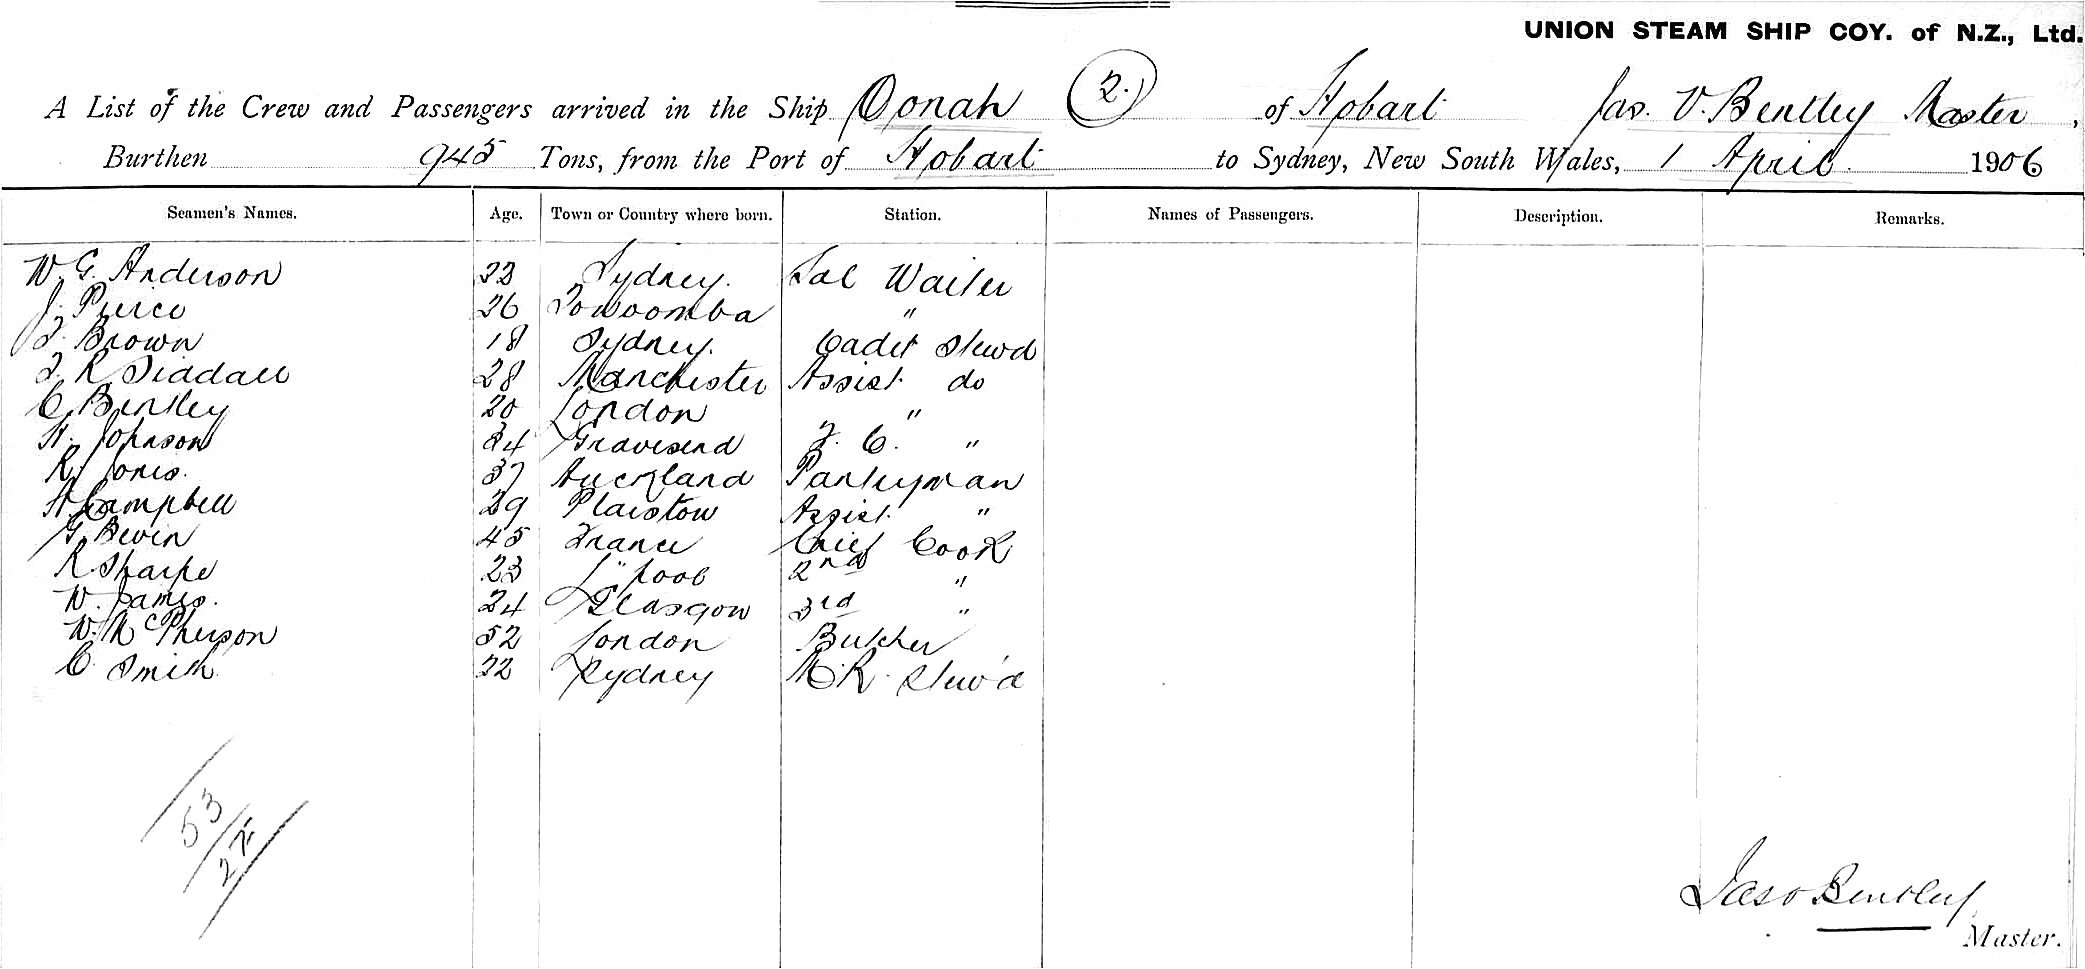 UNION STEAM SHIP COY. of N.Z., Ltd.
A List of the Crew and Passengers arrived in the Ship Oonah (2.) of Hobart Jas. V. Bentley Master,
Burthen 945 Tons, from the Port of Hobart to Sydney, New South Wales, 1 April 1906
Seamen's Names. Age. Town or Country where born. Station. Names of Passengers. Description. Remarks.
W. G. Anderson 23 Sydney. Sal Waiter
J. Pierce 26 Towoomba "
F. Brown 18 Sydney. Cadet Stewd
F. R. Siddall 28 Manchester Assist. do
C. Bentley 20 London "
H. Johnson 24 Gravesend F. C. "
R. Jones. 37 Auckland Pantryman
H Campbell 29 Plaistow Assist. "
G Bevin 45 France Chief Cook
R Sharpe 23 L"pool 2nd "
W. James. 24 Glasgow 3rd "
W. McPherson 52 London Butcher
C. Smith 22 Sydney M. R. Stew'd
53
Bentley
Master.